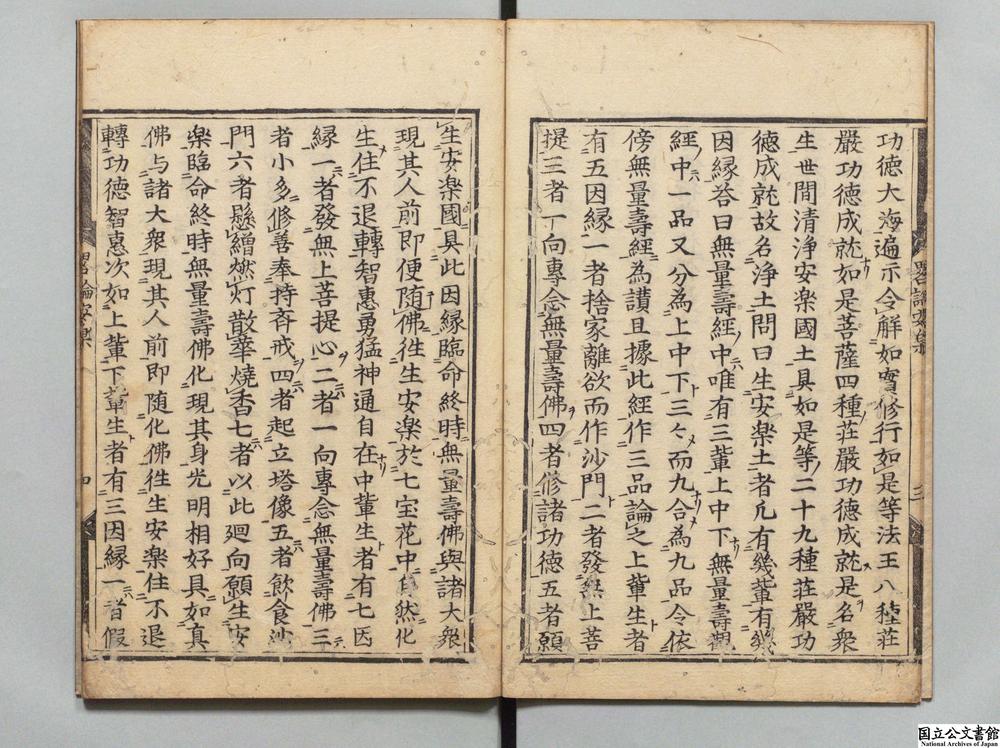 功德大海遍示令解如實修行如是等法王八種莊
嚴功德成就如是菩薩四種莊嚴功德成就是名衆
生世間清浄安楽國土具如是等二十九種莊嚴功
德成就故名浄土問曰生安楽土者凡有幾輩有幾
因縁荅曰無量壽經中唯有三輩上中下無量壽觀
經中一品又分為上中下三々而九合為九品令依
傍無量壽經為讃且據此經作三品論之上輩生者
有五因縁一者捨家離欲而作沙門二者發無上菩
提三者一向專念無量壽佛四者修諸功德五者願
生安楽國具此因縁臨命終時無量壽佛與諸大衆
現其人前即便随佛徃生安楽於七宝花中自然化
生住不退轉智惠勇猛神通自在中輩生者有七因
縁一者發無上菩提心二者一向專念無量壽佛三
者小多修善奉持斉戒四者起立塔像五者飲食沙
門六者懸繒燃灯散華燒香七者以此廻向願生安
楽臨命終時無量壽佛化現其身光明相好具如真
佛与諸大衆現其人前即随化佛徃生安楽住不退
轉功德智惠次如上輩下輩生者有三因縁一者假
畧論安楽
三
畧論安楽
四
国立公文書館
National Archives of Japan